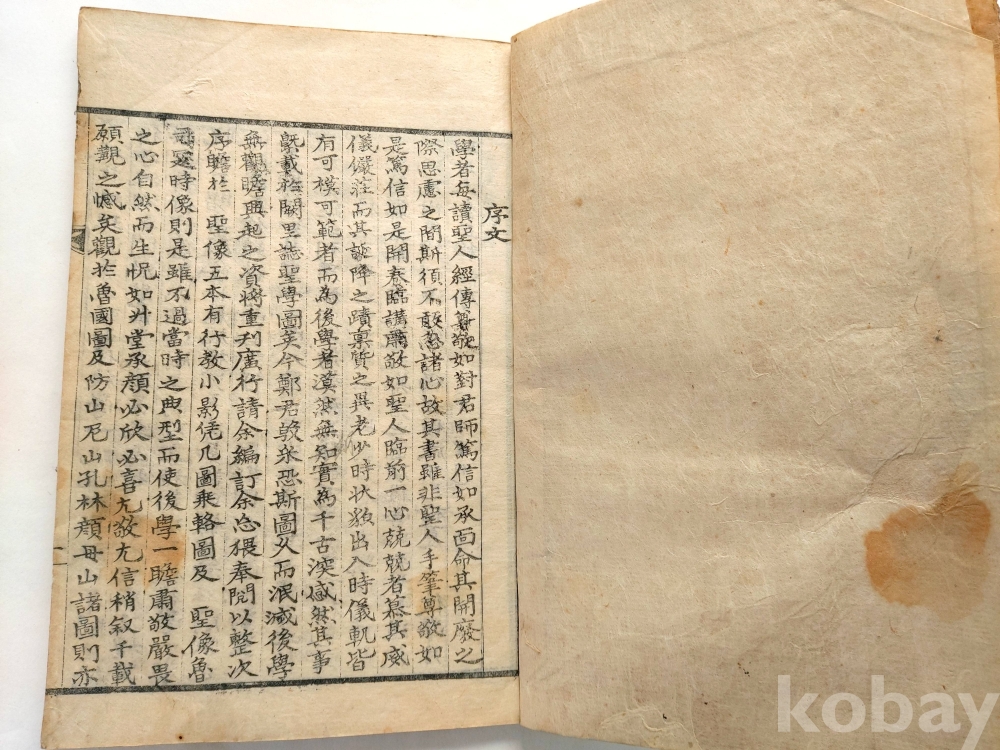 序文
學者每讀聖人經傳尊敬如對君師篤信如承面命其開廢之
際思慮之間斯須不敢忽諸心故其書雖非聖人手筆尊敬如
是篤信如是開卷臨講肅敬如聖人臨前一心兢兢者慕其威
儀儼莊而其誕降之蹟稟質之異老少時狀貌出入時儀軌皆
有可模可範者而為後學者漠然無知實為千古深慽然其事
旣載於闕里誌聖學圖矣今鄭君敦永恐斯圖久而泯滅後學
無觀瞻興起之資將重刊廣行請余編訂余忘猥奉閱以整次
序瞻於 聖像五本有行教小影凭几圖乘輅圖及 聖像魯
司寇時像則是雖不過當時之典型而使後學一瞻肅敬嚴畏
之心自然而生怳如升堂承顔必欣必喜尤敬尤信稍叙千載
願觀之慽矣觀於魯國圖及防山尼山孔林顔母山諸圖則亦
kobay